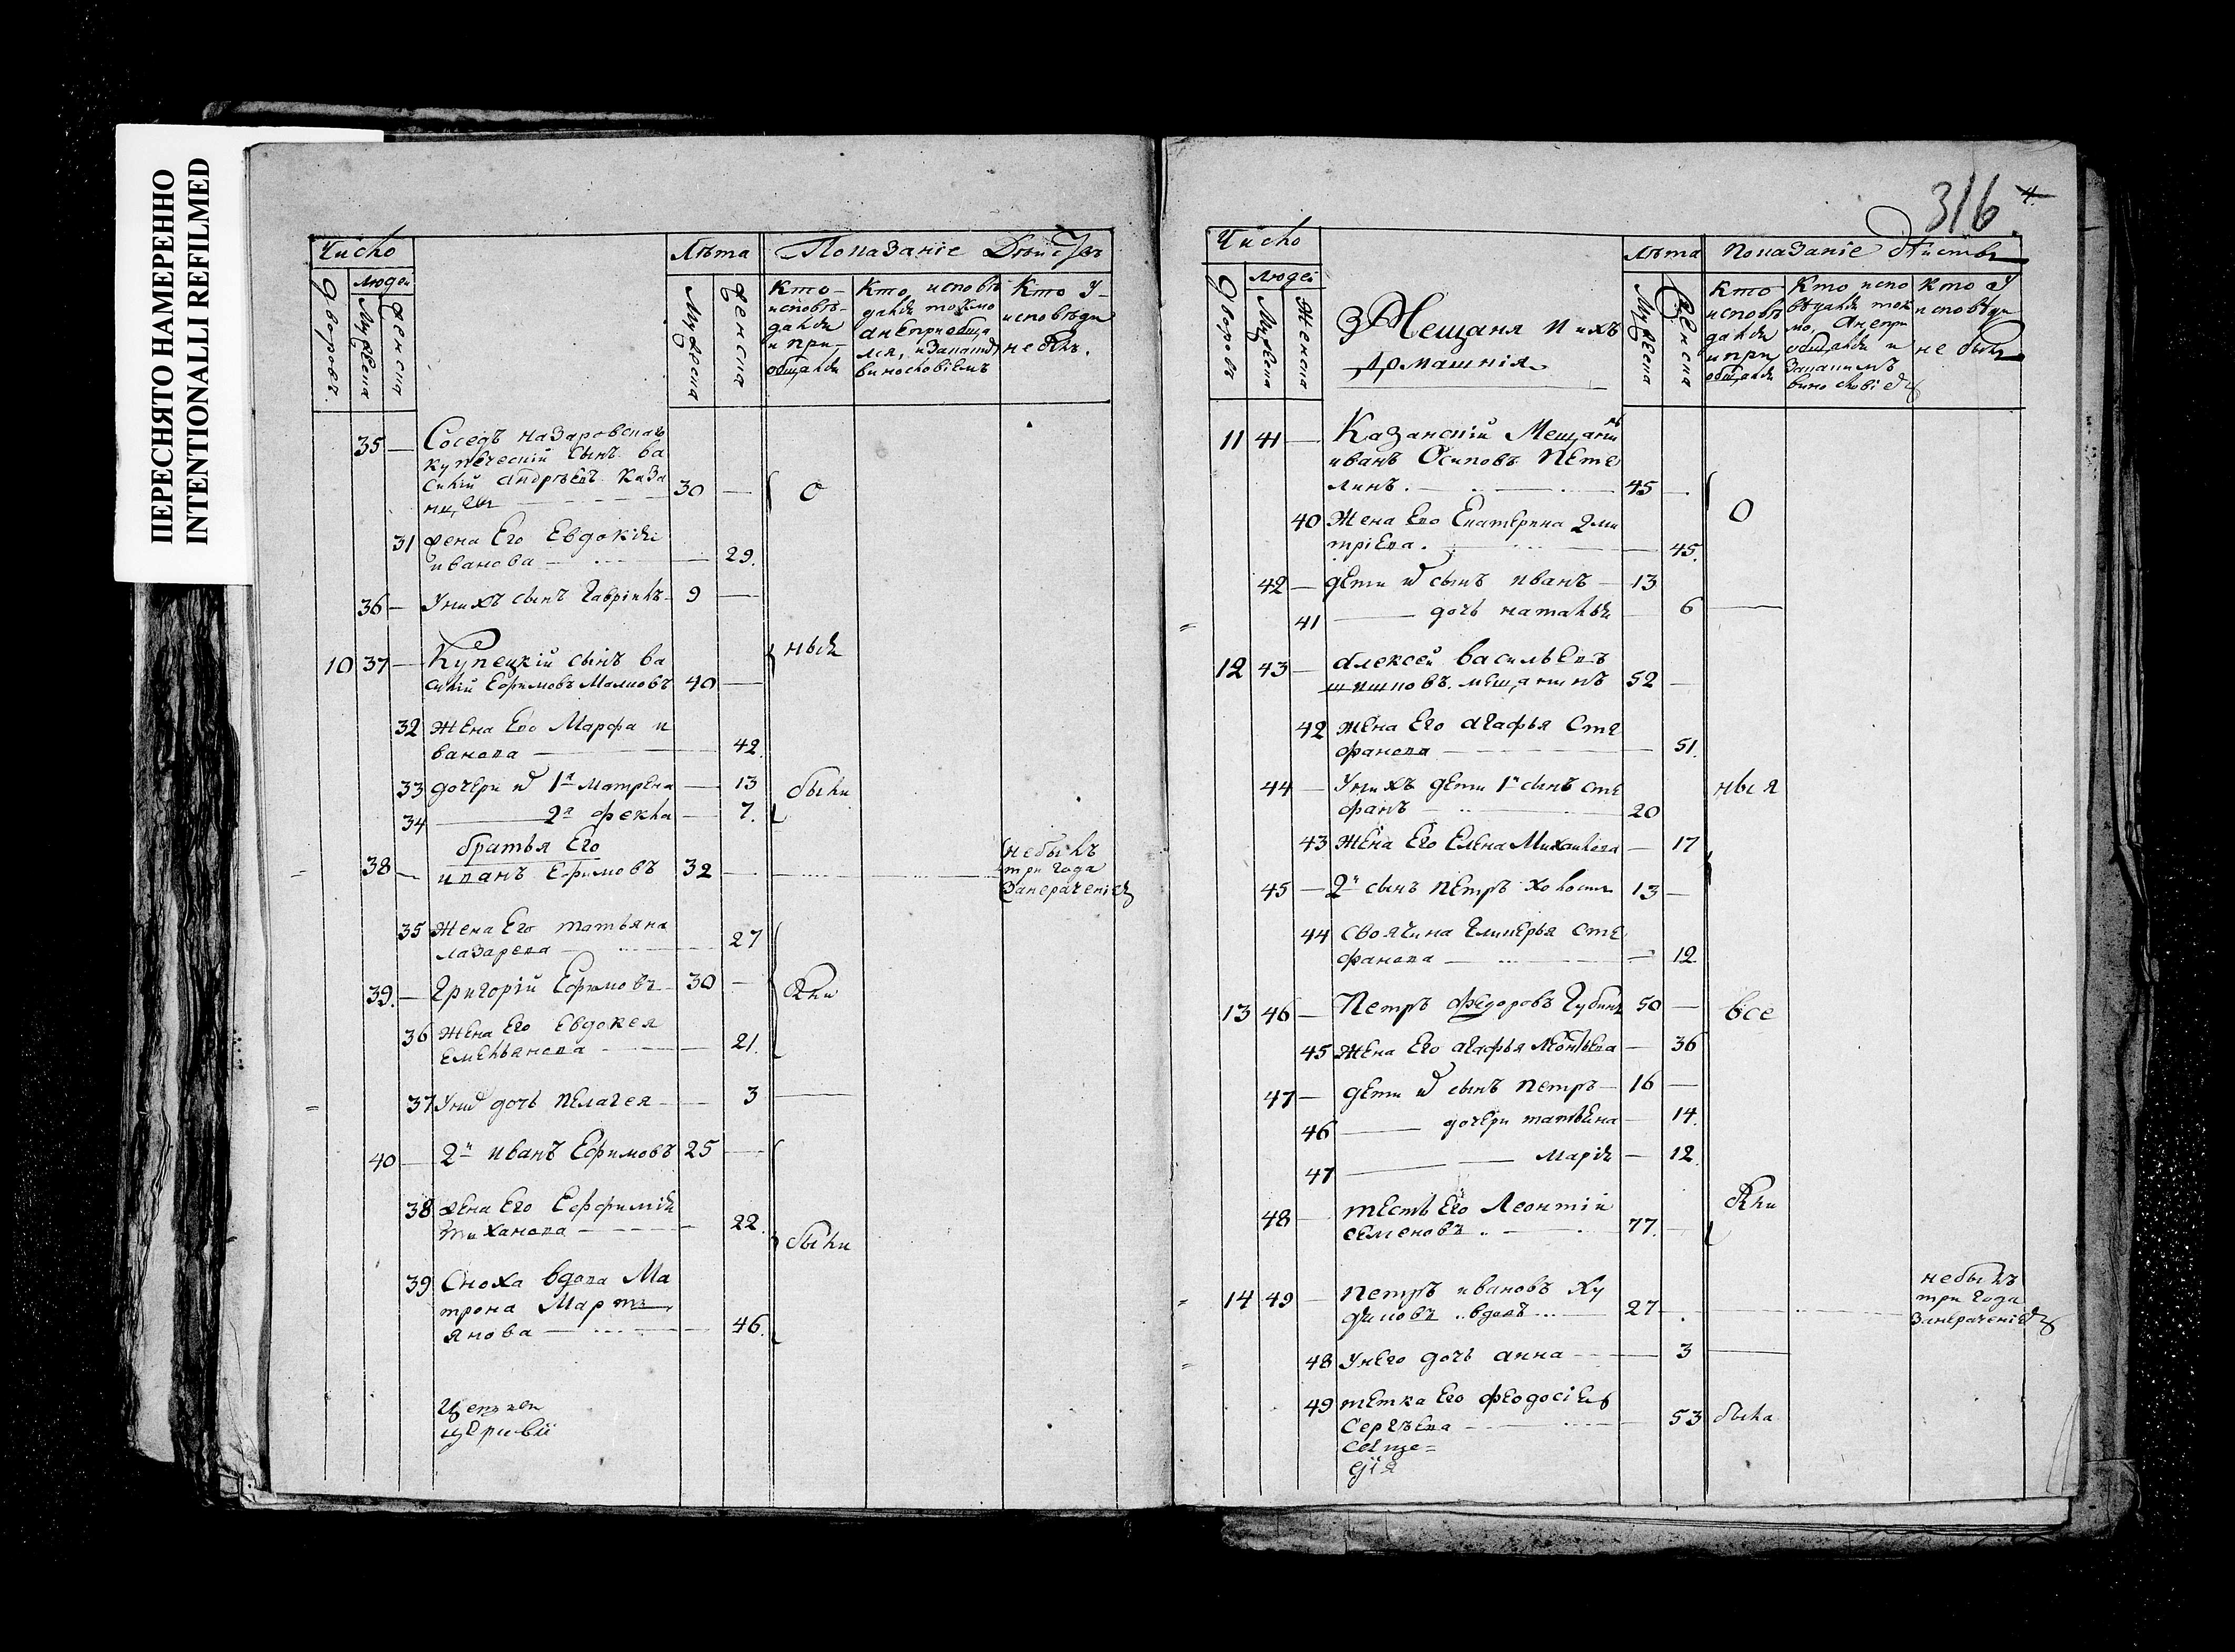 ПЕРЕСНЯТО НАМЕРЕННО
INTENTIONALLI REFILMED
Число
Людей
Дворовъ
Мужеска
Женска
Лѣта
Мужеска
Женска
Показание Дѣйствъ
Кто
исповѣ-
дался
и при-
общался
Кто исповѣ
дался токмо
а не приобща
лся, и за какимъ
винословіемъ
Кто у
исповѣди
не былъ.
35 — Соседъ назаровскаго
купеческий сынъ ва
силий андрѣевъ каза
нцевъ 30 — О
31 жена Его Евдокия
иванова — 29.
36 — У нихъ сынъ Гаврилъ — 9 —
10 37 — Купецкий сынъ ва
силий Ефимовъ Малковъ 40 —
ныя
32 жена Его Марфа и
ванова — 42
33 дочери ихъ 1я Матрена — 13
были
34 — 2я фекла — 7.
братья Его
38 — иванъ Ефимовъ 32 —
небылъ
три года
35 жена Его татьяна
лазарева — 27
39. — Григорий Ефимовъ 30 —
были
36 жена Его Евдокея
Емельянова — 21.
37 дочь пелагея — 3 —
40 — 2й иванъ Ефимовъ 25 —
38 жена Его Еффимия
22.
были
39 Сноха вдова Ма
трона Март
янова — 46.
церкви
316
4
Число
Людей
Дворовъ
Мужеска
Женска
Мещаня и ихъ
домашния
Лѣта
Мужеска
Женска
Показание дѣиствъ
Кто
исповѣ
дался
и при
общался
Кто испо
вѣдался ток
мо, а не при
общался и
за какимъ
винословіемъ
Кто у
исповѣди
не былъ
11 41 — Казанский Мещанинъ
иванъ Осиповъ Пете
линъ. — 45 —
О
40 Жена Его Екатерина Дми
триева. — 45.
42 — дети ихъ сынъ иванъ — 13
41 — дочь наталья — 6 —
12 43 — алексей васильевъ
мещанинъ 52 —
42 жена Его агафья Сте
фанова — 51.
44 — У нихъ дети 1й сынъ сте
фанъ — 20
ныя
43 жена Его Елена Михаилова — 17
45 — 2й сынъ петръ холостъ 13 —
44 своячина Гликерья сте
фанова — 12
13 46 — Петръ федоровъ Губинъ 50 —
все
45 жена Его агафья Леонтьева — 36
47 — дети ихъ сынъ петръ — 16 —
46 — дочери татьяна — 14.
47 — Мария — 12
были
48 — тесть Его Леонтий
семеновъ. — 77. —
14 49 — петръ ивановъ Ху
дяковъ вдовъ 27
небылъ
три года
48 У него дочь анна — 3 —
49 тетка Его феодосия
Сергѣева — 53 была